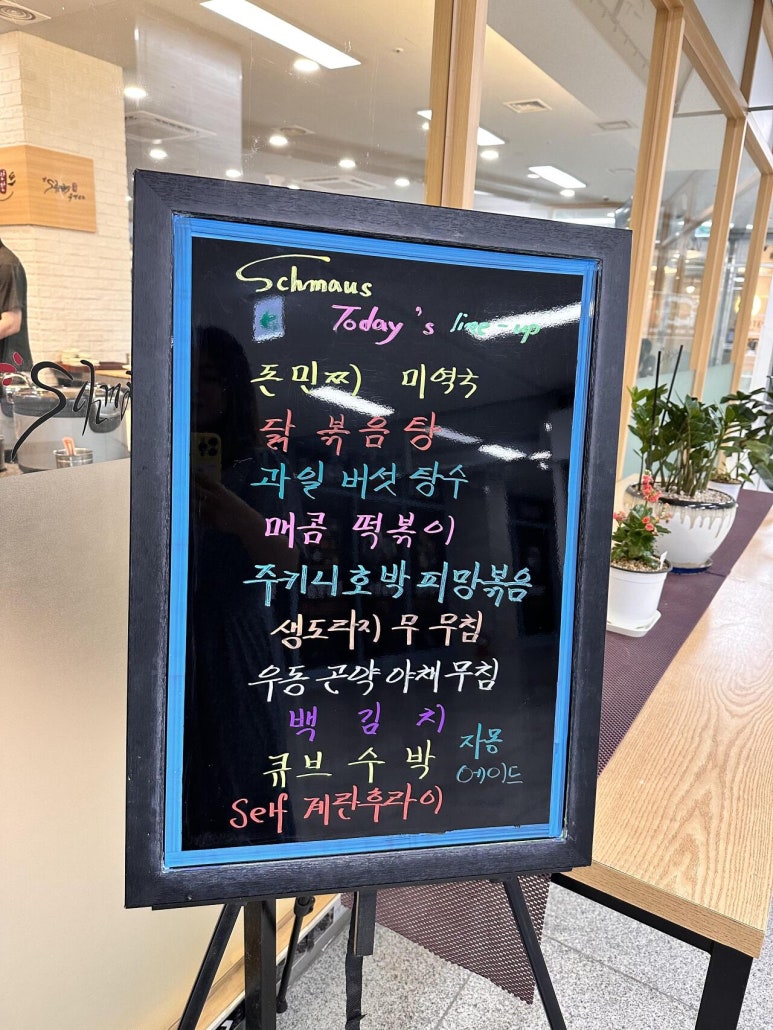 Schmaus
Today's line-up
돈민찌 미역국
닭볶음탕
과일 버섯 탕수
매콤 떡볶이
쥬키니호박 피망볶음
생도라지 무 무침
우동 곤약 야채무침
백김치
큐브 수박
자몽
에이드
Self 계란후라이